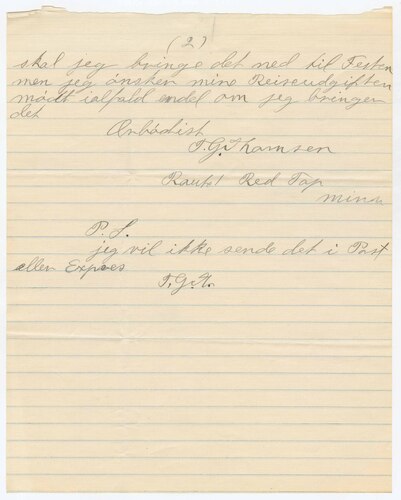 (2)
skal jeg bringe det ned til Festen
men jeg ønsker mine Reiseudgifter
mødt ialfald endel om jeg bringer
det
Ærbødist
T.G. Thomsen
Raut 1 Red Top
Minn
P. S.
jeg vil ikke sende det i Post
eller Expres
T. G. T.